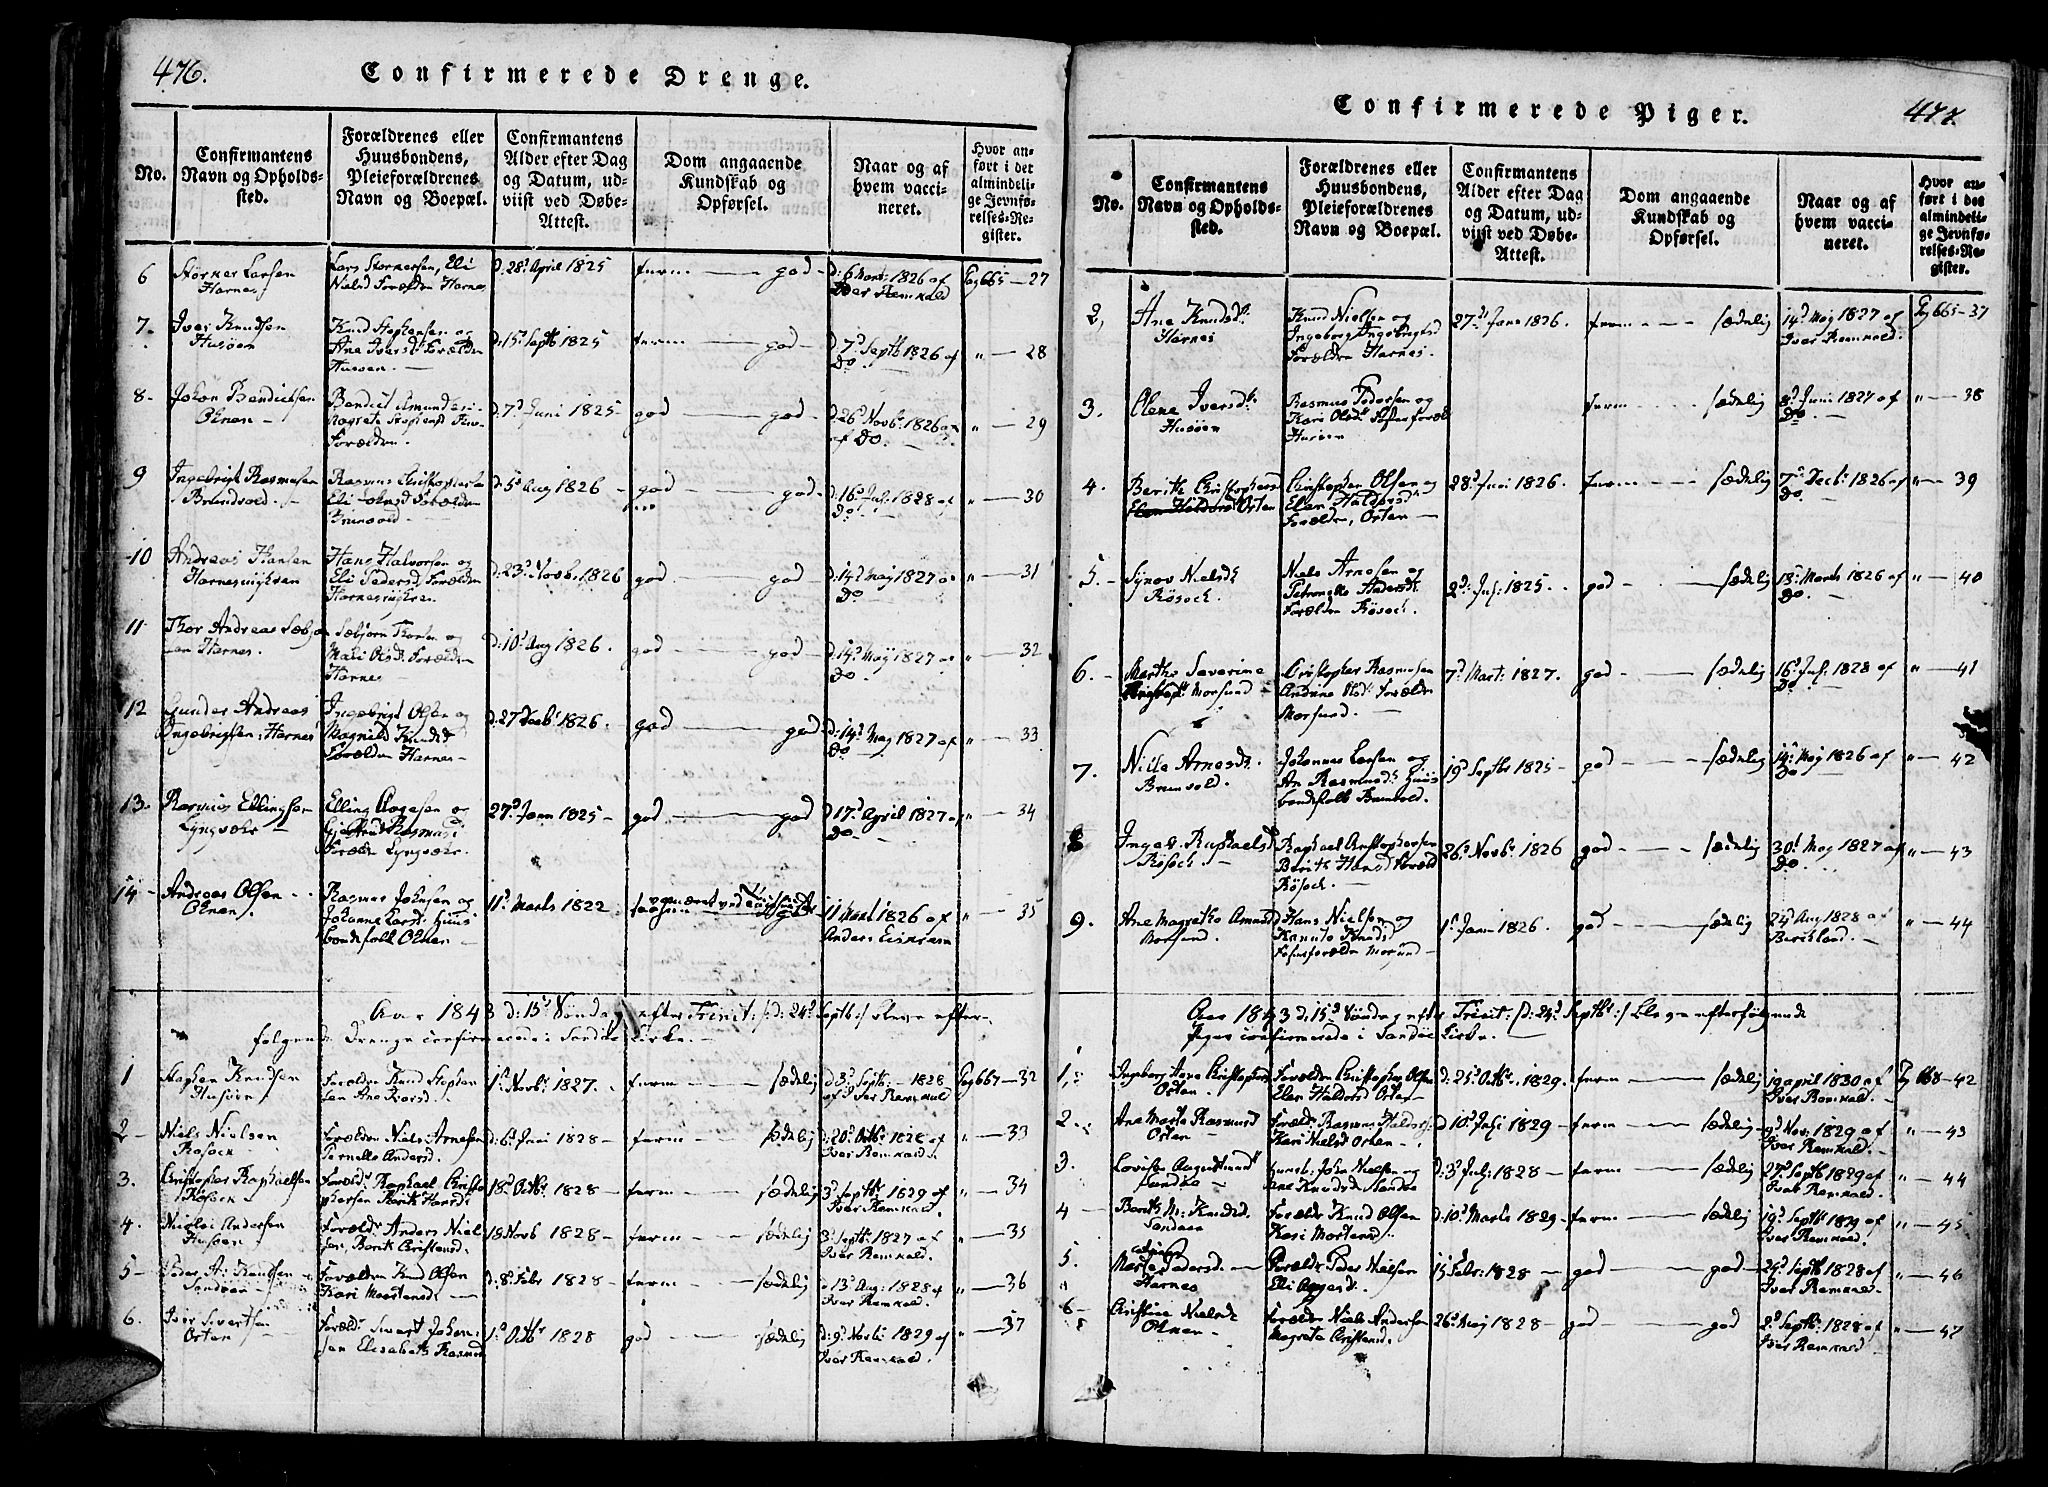 476.
Confirmerede Drenge.
No.
Confirmantens
Navn og Opholds-
sted.
Forældrenes eller
Huusbondens,
Pleieforældrenes
Navn og Boepæl.
Confirmantens
Alder efter Dag
og Datum, ud-
viist ved Døbe-
Attest.
Dom angaaende
Kundskab og
Opførsel.
Naar og af
hvem vacci-
neret.
Hvor an-
ført i det
almindeli-
ge Jevnfø-
relses-Re-
gister.
6
Størker Larsen
Harnes
Lars Størkersen, Eli
Nielsd Forældre Harnes
d: 28d April 1825
god
1826 af
Iver Remvald
Pag 665 — 27
7.
Iver Knudsen
Husøen
Knud Stephensen og
Ane Iversd: Forældre
Husøen.
d: 15d Septb 1825
god
d: 7d Septb 1826 af
Do
" — 28
8.
Johan Bendichsen
Ohnen
d: 7d Juni 1825
god — god
d: 26d Novb: 1826 af
Do.
" — 29
9
Ingebrigt Rasmusen
Brundvold.
d: 5d Aug 1826
god — god
d: 16d Jul: 1828 af
Do
" — 30
10
Andreas Hansen
Harnesmyhren
Hans Halvorsen og
Eli Pedersd Forældre
Harnesmyhren
d: 23d Novb. 1826
god — god
d: 14d Maj 1827 af
Do
" — 31
11
Thor Andreas Sæbjør
sen Harnes.
Sæbjørn Thorsen og
Mali Olsd: Forældre
Harnes
d: 10d Aug 1826.
god — god
d: 14d Maij 1827 af
Do
" — 32
12
Gunder Andreas
Ingebrigtsen, Harnes
Ingebrigt Olsen og
Magnild Knudsd
Forældre Harnes
d: 27d Decbr 1826.
god — god
d: 14d Maj 1827 af
Do
" — 33
13.
Rasmus Ellingsen
Lyngvæhr
Elling Aagesen og
Forældre Lyngvæhr.
27d Janr 1825
god — god
d 17d April 1827 af
Do
" — 34
14
Andreas Olsen
Ohnen.
Rasmus Johnsen og
Johanne Larsd: Huus
bondefolk Ohnen
11d Marts 1822
11 Marts 1826 af
Anders
" — 35
Aar 1843 d: 15d Søndag efter Trinit: /: d: 24d Septb :/ bleve efter-
følgende Drenge confirmerede i Sandøe Kirke.
1
Stephen Knudsen
Husøen
Forældre Knud Stephen
sen Ane Iversd.
1d Novbr 1827.
sædelig
d 3d Septb: 1828
af Iver Remvald
Pag 667 — 32
2
Niels Nielsen
Røsock
Forældre Niels Arnesen
Pernelle Andersd.
d: 6d Juni 1828
sædelig
d: 20d Octb: 1828 af
Iver Remvald.
" — 33
3.
Christopher Raphaelsen
Røsock
Forældr: Raphael Christo
phersen Berit Hansd:
18d Octbr 1828
sædelig
3d Septbr 1829 af
Iver Remvald
" — 34
4.
Nicolai Andersen
Husøen
Forældr: Anders Niel
sen, Berit Christensd.
18 Novb 1828
sædelig
3d Septbr 1827 af
Iver Remvald.
" — 35
5
Peder A: Knudsen
Sandøen
Forældre Knud Olsen
Kari Mortensd
d: 8d Febr 1828
sædelig
d 13d Aug: 1828 af
Iver Remvald.
" — 36
6.
Iver Sivertsen
Orten
Forældr: Sivert Johan
sen Elisabeth Rasmusd
1d Octbr 1828
god — sædelig
1829 af
Iver Remvald.
" — 37
477.
Confirmerede Piger.
No.
Confirmantens
Navn og Opholds-
sted.
Forældrenes eller
Huusbondens,
Pleieforældrenes
Navn og Boepæl.
Confirmantens
Alder efter Dag
og Datum, ud-
viist ved Døbe-
Attest.
Dom angaaende
Kundskab og
Opførsel.
Naar og af
hvem vacci-
neret.
Hvor an-
ført i det
almindeli-
ge Jevnfø-
relses-Re-
gister.
2,
Ane Knudsd:
Harnes
Knud Nielsen og
Ingeborg Ingebrigtsd
Forældre Harnes.
27d Janr 1826.
sædelig
14d Maj 1827 af
Iver Remvald.
Pg 665 — 37
3.
Olene Iversd:
Husøen
Rasmus Pedersen og
Kari Olsd: Fosterforæld
Husøen
sædelig
8d Juni 1827 af
Do
" — 38
4.
Berithe Christophersd
Orten
Christopher Olsen og
Elen Haldorsd
Forældre, Orten
28d Juni 1826.
sædelig
7d Decb: 1826 af
Do.
" — 39
5.
Synov Nielsd:
Røsock.
Niels Arnesen og
Petronelle Andersd:
Forældre Røsock.
2d: Jul: 1825.
god — sædelig
13d Marts 1826 af
Do.
" — 40
6.
Marthe Severine
Morsund
Christopher Rasmusen
Forældre
Morsund.
7d Mart: 1827.
god — sædelig
16d Jul: 1828 af
Do
" — 41
7.
Nille Arnesd:
Brunvold.
Johannes Larsen og
An Rasmusd: Huus
bondefolk Brunvold.
19d Septbr 1825
god — sædelig
14d Maj 1826 af
Do
" — 42
8
Raphaelsd
Røsock.
Raphael Christophersen
Berith Hansd Foræld
Røsock.
26d Novbr 1826
god — sædelig
30d Maj 1827 af
Do
" — 43
9.
Ane Magrethe Amundsd
Morsund.
Hans Nielsen og
Knudsd
Fosterforældre Morsund
1d Janr 1826.
god — sædelig
24d Aug 1828 af
" — 44
Aar 1843 d: 15d Søndag efter Trinit: /: d: 24d Septbr :/ bleve efterfølgende
Piger confirmerede i Sandøe Kirke.
1,
Ingeborg Ane Christophersd
Orten.
Forældre Christopher Olsen
Elen Haldorsd Orten
d: 25d Octbr. 1829.
sædelig
19 april 1830 af
Iver Remvald.
Pg 668 — 42
2.
Ane Marte Rasmusd
Orten
Forældr: Rasmus Haldors:
Kari Nielsd Orten
d 10d Juli 1829
sædelig
9d Nov: 1829 af
Iver Remvald.
" — 43
3.
Lovise
Sandøe
Huusb: John Nielsen og
Ane Knudsd Sandøe
d: 3d Jul: 1828
sædelig
27d Septb 1829 af
Iver Remvald.
" — 44
4
Berith M: Knudsd.
Sandøen
Forældr Knud Olsen
Kari Mortensd
d: 10d Marts 1829
sædelig
19d Septb 1829 af
Iver Remvald.
" — 45
5.
Marte Pedersd.
Harnes
Forældr Peder Nielsen
Eli Aagesd:
15 Febr: 1828
god — god
24d Septb 1828 af
Iver Remvald
" — 46
6
Christine Nielsd:
Ohnen
Forældr Niels Andersen
Magreta Christensd.
26d Maj 1828
god — god
2d Septb: 1828 af
Iver Remvald
" — 47